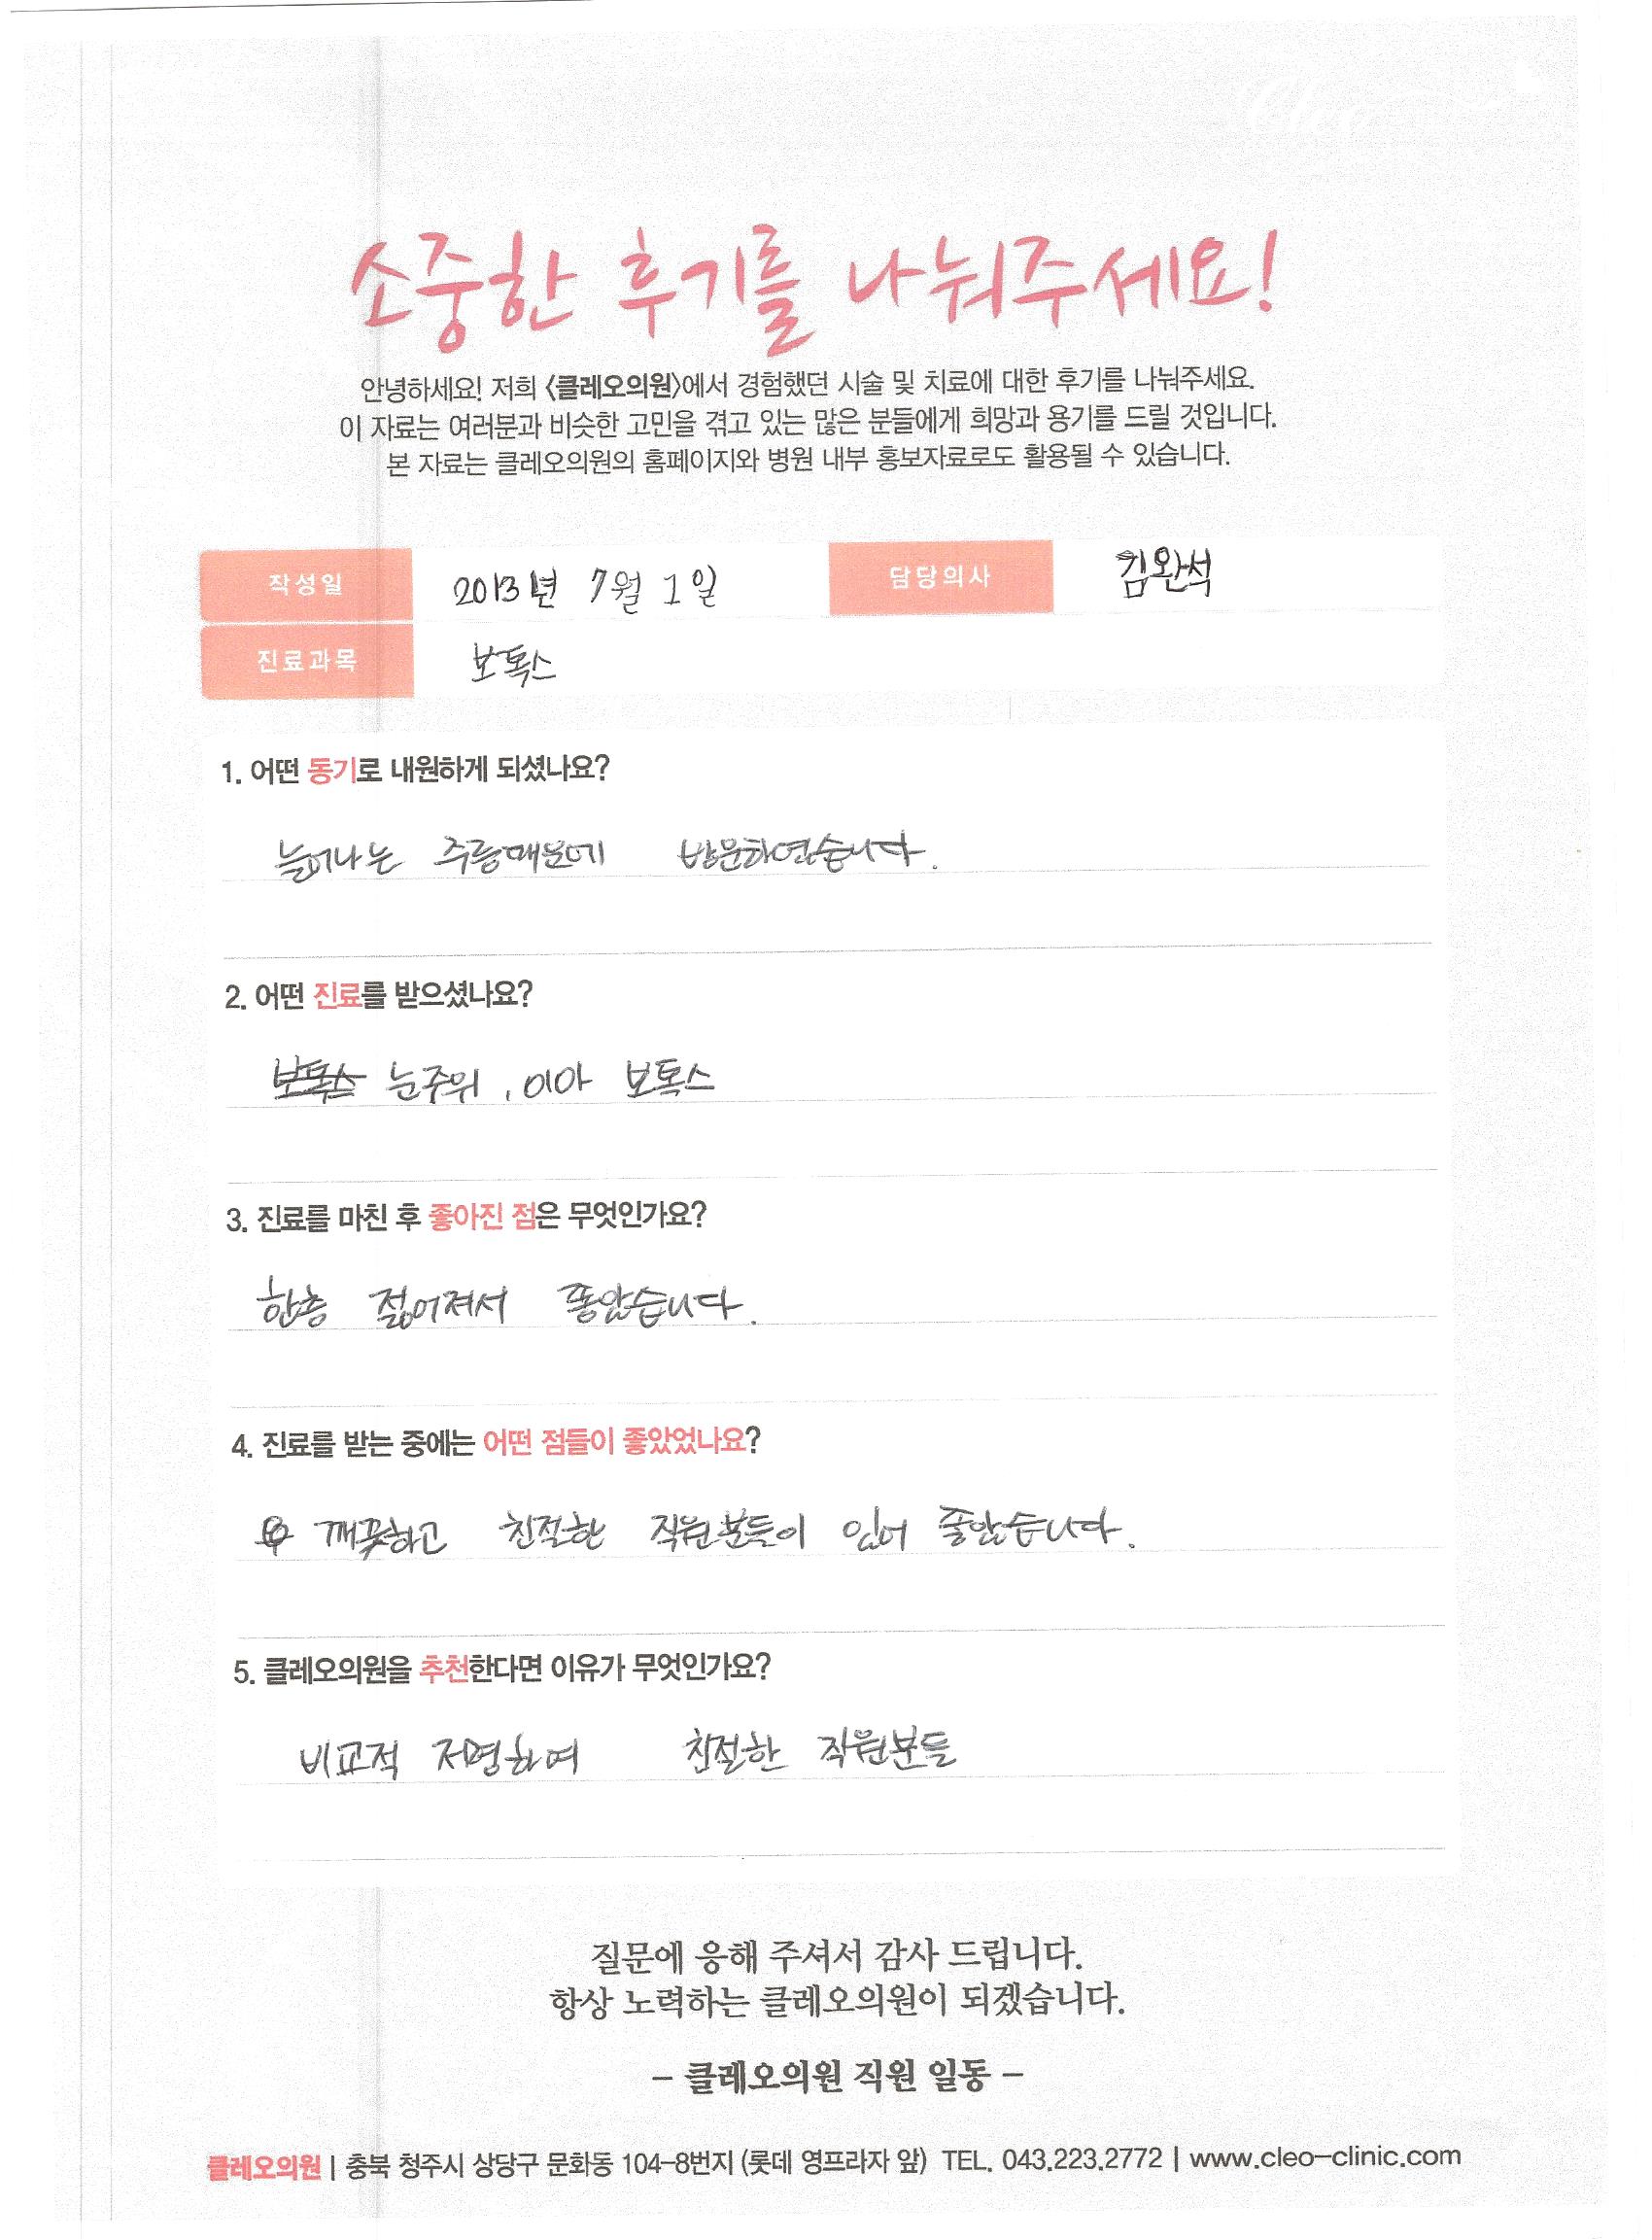 소중한 후기를 나눠주세요!
안녕하세요! 저희 <클레오의원>에서 경험했던 시술 및 치료에 대한 후기를 나눠주세요.
이 자료는 여러분과 비슷한 고민을 겪고 있는 많은 분들에게 희망과 용기를 드릴 것입니다.
본 자료는 클레오의원의 홈페이지와 병원 내부 홍보자료로도 활용될 수 있습니다.
작성일 2013년 7월 1일 담당의사 김완석
진료과목 보톡스
1. 어떤 동기로 내원하게 되셨나요?
늘어나는 주름때문에 방문하였습니다.
2. 어떤 진료를 받으셨나요?
보톡스 눈주위, 이마 보톡스
3. 진료를 마친 후 좋아진 점은 무엇인가요?
한층 젊어져서 좋았습니다.
4. 진료를 받는 중에는 어떤 점들이 좋았었나요?
깨끗하고 친절한 직원분들이 있어 좋았습니다.
5. 클레오의원을 추천한다면 이유가 무엇인가요?
비교적 저명하며 친절한 직원분들
질문에 응해 주셔서 감사 드립니다.
항상 노력하는 클레오의원이 되겠습니다.
– 클레오의원 직원 일동 –
클레오의원 | 충북 청주시 상당구 문화동 104-8번지 (롯데 영프라자 앞) TEL. 043.223.2772 | www.cleo-clinic.com